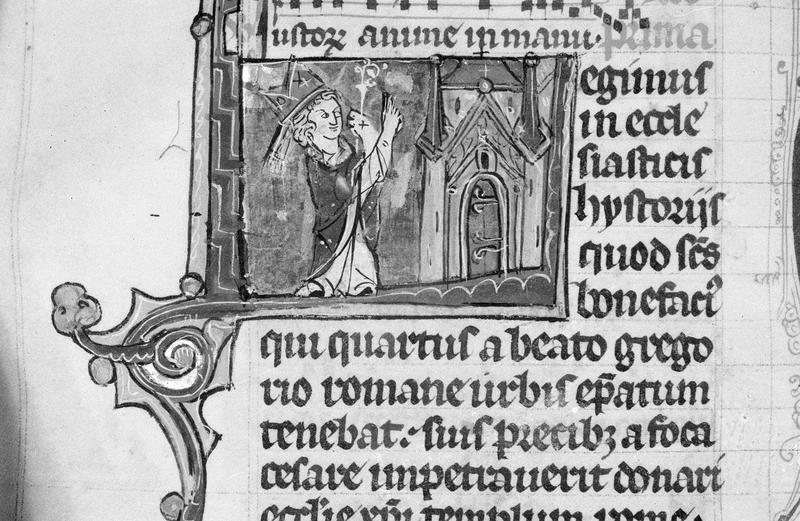 iustorꝝ anime in manu. prima
egimus
in eccle
siasticis
hystorijs
quod scs̄
bonefaciꝰ
qui quartus a beato grego
rio romane urbis ep̄atum
tenebat. suis precibꝫ a foca
cesare impetrauerit donari
eccl'ie xp̄i templum rome.